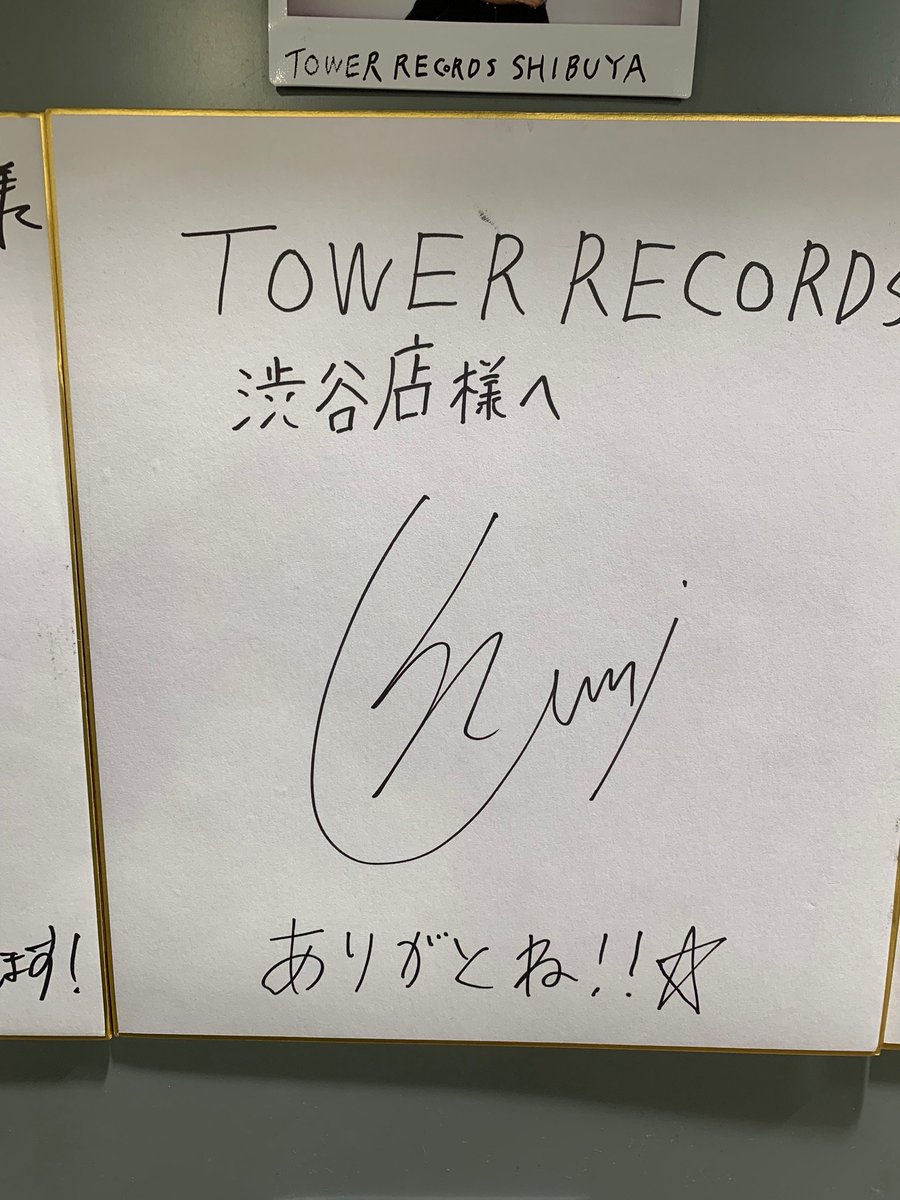 TOWER RECORDS SHIBUYA
様
TOWER RECORDS
渋谷店様へ
ありがとね!!☆
ます!